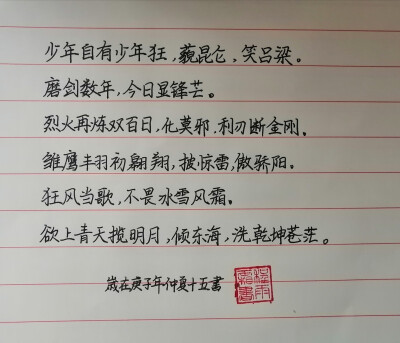 少年自有少年狂，藐昆仑，笑吕梁。
磨剑数年，今日显锋芒。
烈火再炼双百日，化莫邪，利刃断金刚。
雏鹰丰羽初翱翔，披惊雷，傲骄阳。
狂风当歌，不畏冰雪风霜。
欲上青天揽明月，倾东海，洗乾坤苍茫。
岁在庚子年仲夏十五书